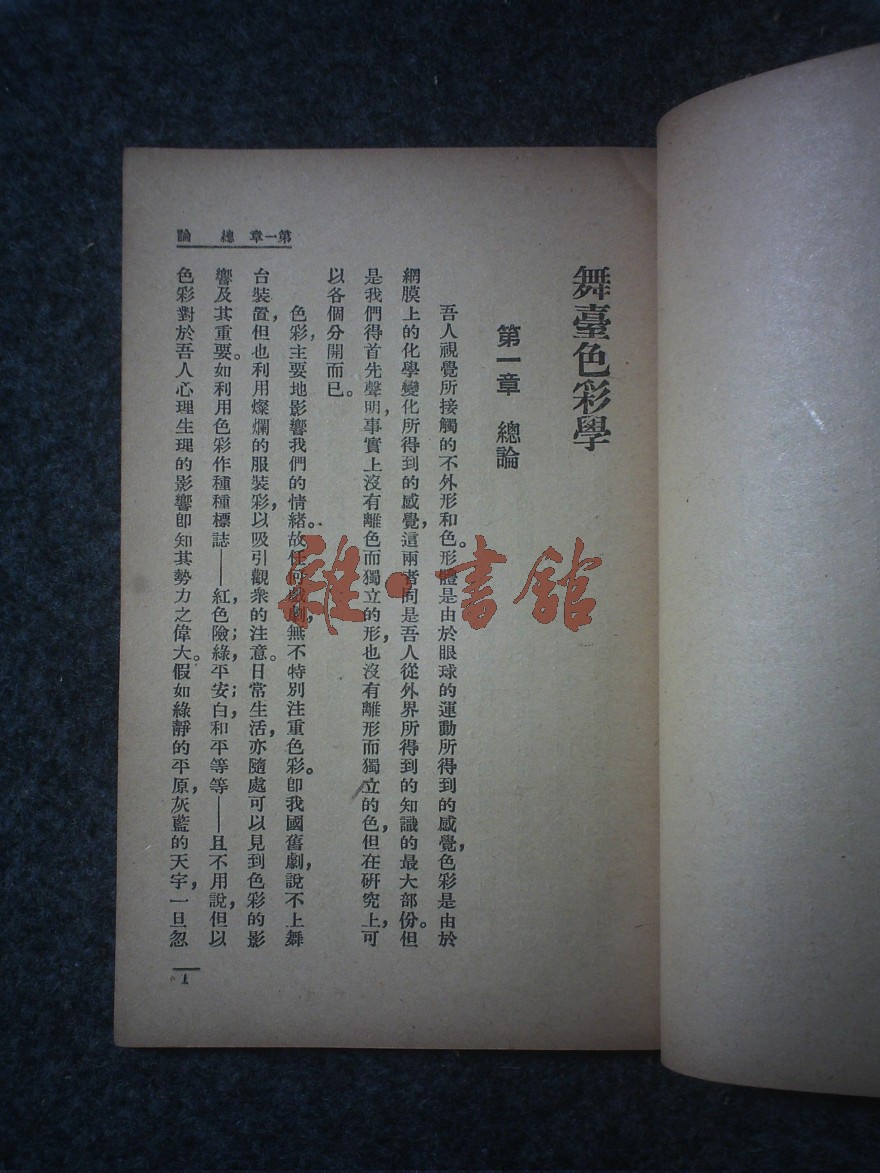 舞臺色彩學
第一章 總論
吾人視覺所接觸的不外形和色。形體是由於眼球的運動所得到的感覺,色彩是由於
網膜上的化學變化所得到的感覺,這兩者同是吾人從外界所得到的知識的最大部份。但
是我們得首先聲明,事實上沒有離色而獨立的形,也沒有離形而獨立的色,但在研究上,可
以各個分開而已。
色彩,主要地影響我們的情緒。故任何戲劇,無不特別注重色彩。卽我國舊劇,說不上舞
台裝置,但也利用燦爛的服裝彩,以吸引觀衆的注意。日常生活,亦隨處可以見到色彩的影
響及其重要。如利用色彩作種種標誌——紅,色險;綠,平安;白,和平等等——且不用說,但以
色彩對於吾人心理生理的影響卽知其勢力之偉大。假如綠靜的平原,灰藍的天宇,一旦忽
第一章 總 論
1
雜·書館